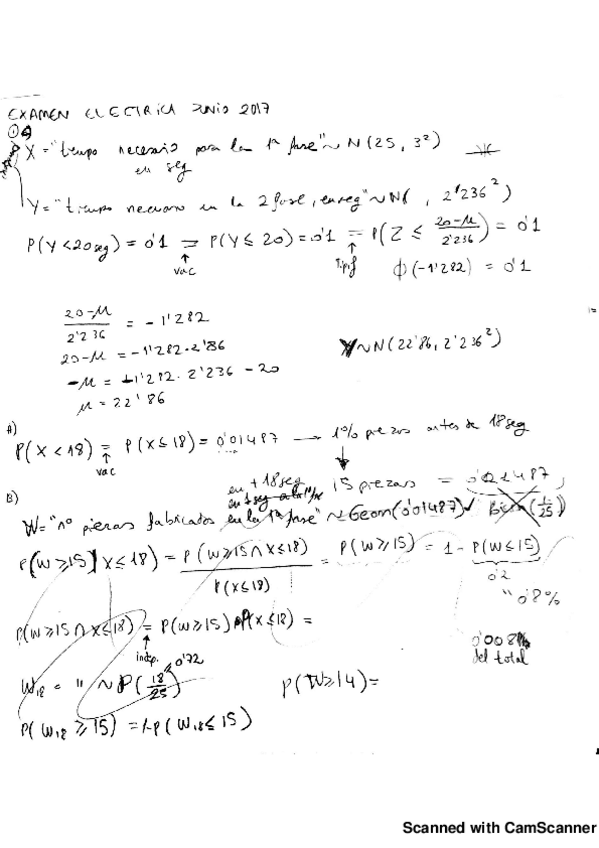 EXAMEN ELECTRICA JUNIO 2017
X = "tiempo necesario para la 1ª fase" ~ N(25, 3²)
en seg
Y = "tiempo necesario en la 2 fase, en seg" ~ N( , 2'236²)
P(Y < 20 seg) = 0'1 = P(Y ≤ 20) = 0'1 = P(Z ≤ (20-μ)/2'236) = 0'1
vac Tipif ϕ(-1'282) = 0'1
(20-μ)/2'236 = -1'282
20-μ = -1'282·2'86 Y~N(22'86, 2'236²)
-μ = -1'282·2'236 - 20
μ = 22'86
A)
P(X < 18) = P(X ≤ 18) = 0'01487 → 1% piezas antes de 18 seg
vac
en + 18 seg 15 piezas = 0'01487,
B)
W = "nº piezas fabricadas en la 1ª fase" ~ Geom(0'01487) (1/25)
P(W ≥ 15 | X ≤ 18) = P(W ≥ 15 ∩ X ≤ 18) / P(X ≤ 18) = P(W ≥ 15) = 1 - P(W ≤ 15)
0'2
0'8%
P(W ≥ 15 ∩ X ≤ 18) = P(W ≥ 15) P(X ≤ 18) =
indep. 0'008
del total
W₁₈ = " ~ P(18/25) 0'72 P(W ≥ 14) =
P(W₁₈ ≥ 15) = 1-P(W₁₈ ≤ 15)
Scanned with CamScanner